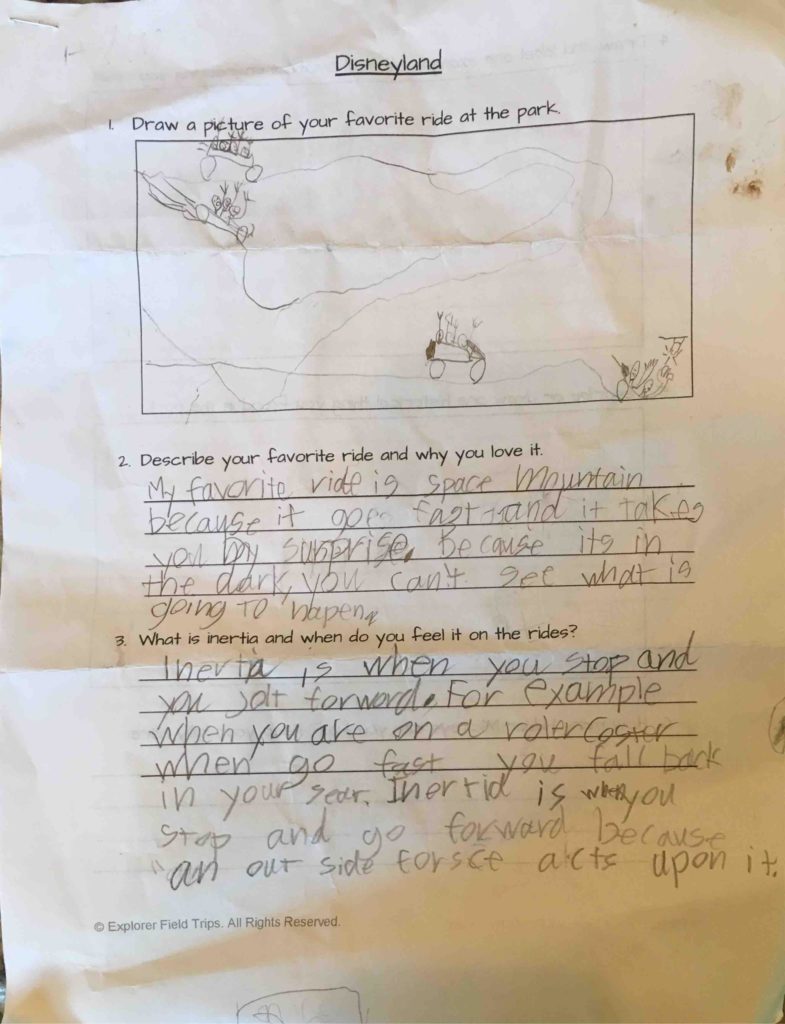 Disneyland
1. Draw a picture of your favorite ride at the park.
2. Describe your favorite ride and why you love it.
My favorite ride is space Mountain
because it goes fast and it takes
you by surprise. Because its in
the dark, you can't see what is
going to hapen.
3. What is inertia and when do you feel it on the rides?
Inertia is when you stop and
you jolt forward. For example
when you are on a roler Coster
when go fast you fall back
in your seat. Inertia is when you
stop and go forward because
an out side forsce acts upon it.
© Explorer Field Trips. All Rights Reserved.